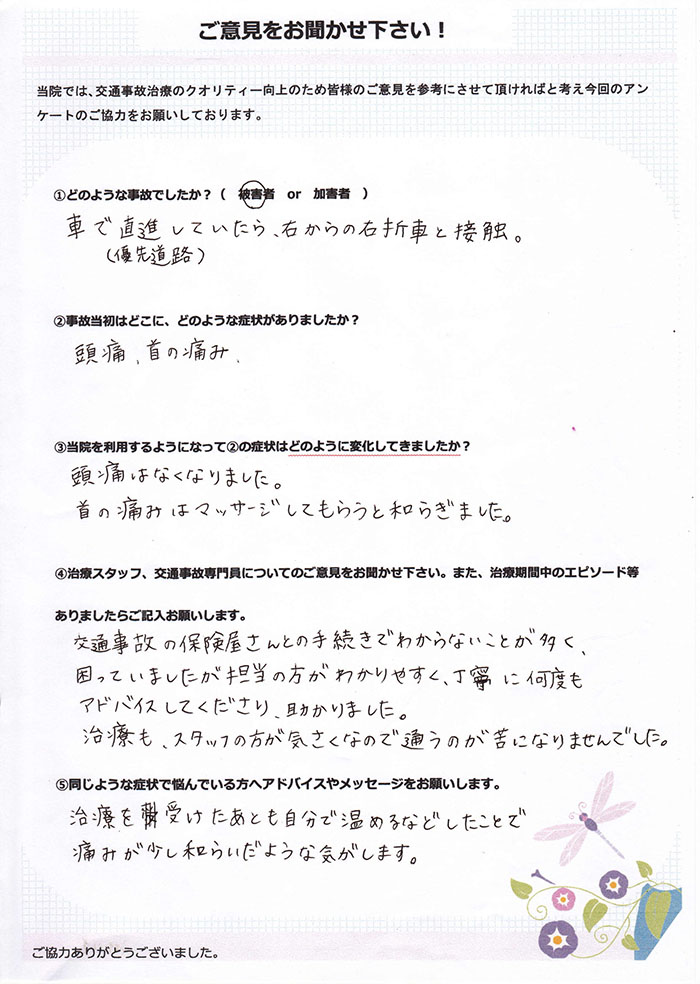 ご意見をお聞かせ下さい！
当院では、交通事故治療のクオリティー向上のため皆様のご意見を参考にさせて頂ければと考え今回のアン
ケートのご協力をお願いしております。
①どのような事故でしたか？（ 被害者 or 加害者 ）
車で直進していたら、右からの右折車と接触。
（優先道路）
②事故当初はどこに、どのような症状がありましたか？
頭痛、首の痛み、
③当院を利用するようになって②の症状はどのように変化してきましたか？
頭痛はなくなりました。
首の痛みはマッサージしてもらうと和らぎました。
④治療スタッフ、交通事故専門員についてのご意見をお聞かせ下さい。また、治療期間中のエピソード等
ありましたらご記入お願いします。
交通事故の保険屋さんとの手続きでわからないことが多く、
困っていましたが担当の方がわかりやすく、丁寧に何度も
アドバイスしてくださり、助かりました。
治療も、スタッフの方が気さくなので通うのが苦になりませんでした。
⑤同じような症状で悩んでいる方へアドバイスやメッセージをお願いします。
治療を受けたあとも自分で温めるなどしたことで
痛みが少し和らいだような気がします。
ご協力ありがとうございました。